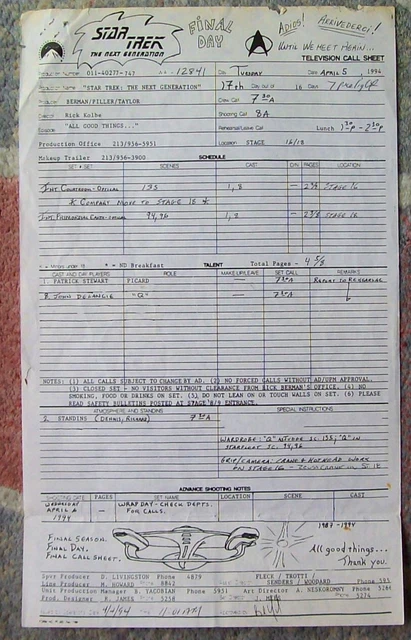 STAR TREK
THE NEXT GENERATION
FINAL DAY
ADIOS! ARRIVEDERCI!
UNTIL WE MEET AGAIN...
TELEVISION CALL SHEET
Production Number 011-40277-747 #12841 Day TUESDAY Date APRIL 5, 1994
"STAR TREK: THE NEXT GENERATION" 17th Day out of 16 Days
BERMAN/PILLER/TAYLOR Crew Call 7 30 A
Rick Kolbe Shooting Call 8A
Episode "ALL GOOD THINGS..." Rehearse/Leave Call Lunch
Production Office 213/956-3951 Location STAGE 16/18
Makeup Trailer 213/956-3900 SCHEDULE
SET SCENES CAST D/N PAGES LOCATION
INT COURTROOM 135 1, 8 — STAGE 16
* COMPANY MOVE TO STAGE 18 *
94, 96 1, 8 — STAGE 18
* = ND Breakfast TALENT Total Pages - 4 5/8
CAST AND DAY PLAYERS ROLE MAKEUP/LEAVE SET CALL REMARKS
1. PATRICK STEWART PICARD — 7 30 A REPORT TO REHEARSAL
8. JOHN DELANCIE "Q" — 7 30 A
NOTES: (1) ALL CALLS SUBJECT TO CHANGE BY AD. (2) NO FORCED CALLS WITHOUT AD/UPM APPROVAL.
(3) CLOSED SET - NO VISITORS WITHOUT CLEARANCE FROM RICK BERMAN'S OFFICE. (4) NO
SMOKING, FOOD OR DRINKS ON SET. (5) DO NOT LEAN ON OR TOUCH WALLS ON SET. (6) PLEASE
READ SAFETY BULLETINS POSTED AT STAGE 8/9 ENTRANCE.
ATMOSPHERE AND STANDINS SPECIAL INSTRUCTIONS
2 STANDINS (DENNIS, RICHARD) 7 30 A
WARDROBE: "Q" SC. 135, "Q" IN
STARFLEET SC. 94, 96
GRIP/CAMERA: CRANE & HOTHEAD WORK
ON STAGE 16
ADVANCE SHOOTING NOTES
SHOOTING DATE PAGES SET NAME LOCATION SCENE CAST
WEDNESDAY APRIL 6 1994 WRAP DAY - CHECK DEPTS. FOR CALLS.
FINAL SEASON.
FINAL DAY.
FINAL CALL SHEET.
1987 - 1994
All good things...
Thank you.
Spvr Producer D. LIVINGSTON Phone 4879 FLECK / TROTTI /
Line Producer M. HOWARD Phone 8842 SENDERS / WOODARD Phone
Unit Production Manager B. YACOBIAN Phone 5931 Art Director A. NESKOROMNY Phone
Prod. Designer R. JAMES Phone 5258 Phone 5274
4/4/94